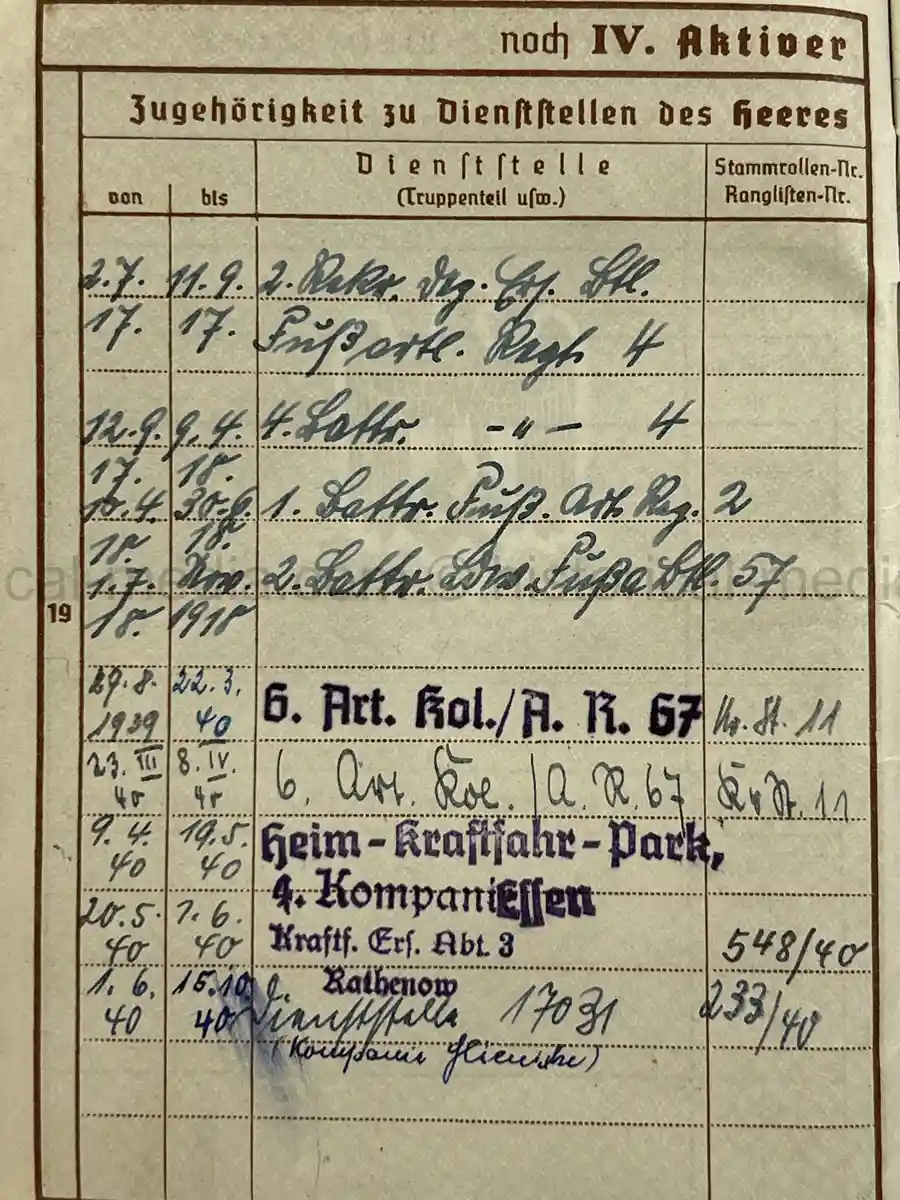 noch IV. Aktiver
Zugehörigkeit zu Dienststellen des Heeres
von bis Dienststelle (Truppenteil usw.) Stammrollen-Nr. Ranglisten-Nr.
2.7. 11.9. 2. Rekr. Dep. Ers. Btl.
17. 17. Fußartl. Regt. 4
12.9. 9.4. 4. Battr. -"- 4
17. 18.
10.4. 30.6. 1. Battr. Fuß. Art. Reg. 2
18. 18.
1.7. Nov. 2. Battr. Ldw. Fußa Btl. 57
19 18. 1918
29.8. 22.3. 6. Art. Kol./A. R. 67 Kr. St. 11
1939 40
23. III 8. IV. 6. Art. Kol. /A. R. 67 Kr St. 11
40 40
9.4. 19.5. Heim-Kraftfahr-Park,
40 40 Essen
20.5. 1.6. 4. Kompanie
40 40 Kraftf. Ers. Abt. 3 548/40
1.6. 15.10. Rathenow
40 40 Dienststelle 17031 233/40
(Kompanie)